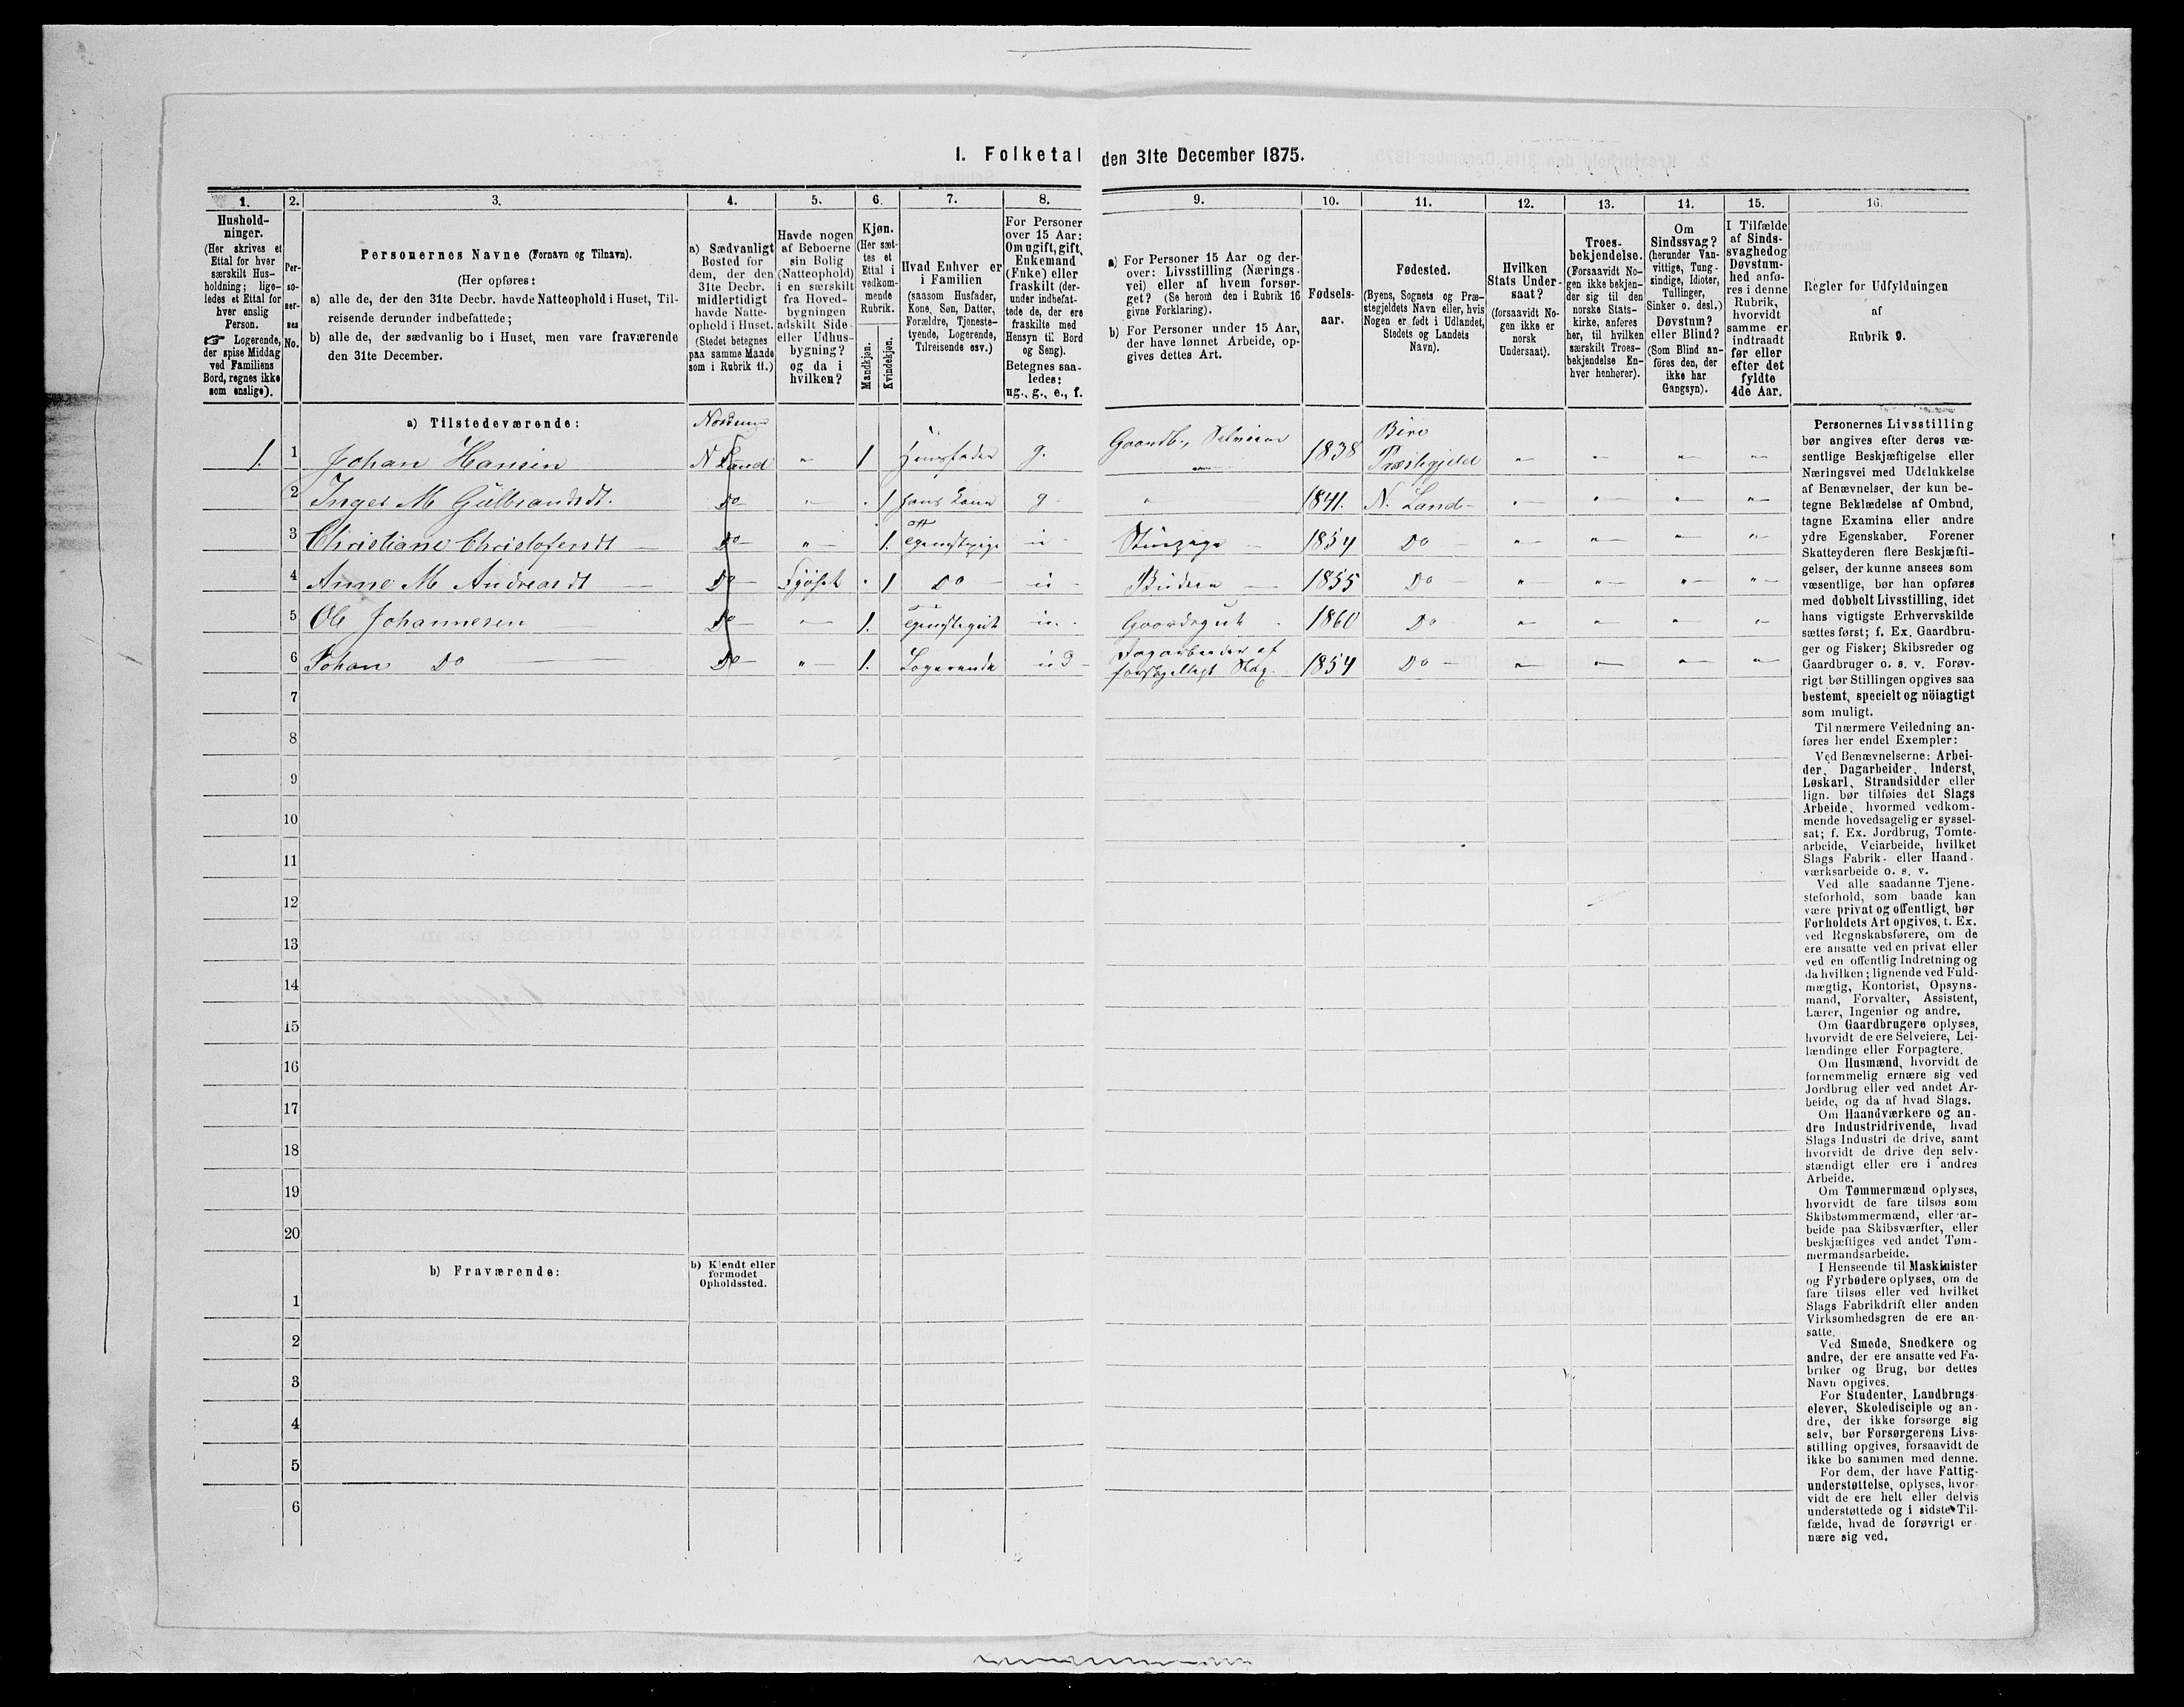 1. Folketal den 31te December 1875.
1.
Hushold-
ninger.
(Her skrives et
Ettal for hver
særskilt Hus-
holdning; lige-
ledes et Ettal for
hver enslig
Person.
☞ Logerende,
der spise Middag
ved Familiens
Bord, regnes ikke
som enslige).
2.
Per-
so-
ner-
nes
No.
3.
Personernes Navne (Fornavn og Tilnavn).
(Her opføres:
a) alle de, der den 31te Decbr. havde Natteophold i Huset, Til-
reisende derunder indbefattede;
b) alle de, der sædvanlig bo i Huset, men vare fraværende
den 31te December.
4.
a) Sædvanligt
Bosted for
dem, der den
31te Decbr.
midlertidigt
havde Natte-
ophold i Huset.
(Stedet betegnes
paa samme Maade
som i Rubrik 11.)
5.
Havde nogen
af Beboerne
sin Bolig
(Natteophold)
i en særskilt
fra Hoved-
bygningen
adskilt Side-
eller Udhus-
bygning?
og da i
hvilken?
6.
Kjøn.
(Her sæt-
tes et
Ettal i
vedkom-
mende
Rubrik.
Mandkjøn.
Kvindekjøn.
7.
Hvad Enhver er
i Familien
(saasom Husfader,
Kone, Søn, Datter,
Forældre, Tjeneste-
tyende, Logerende,
Tilreisende osv.)
8.
For Personer
over 15 Aar:
Om ugift, gift,
Enkemand
(Enke) eller
fraskilt (der-
under indbefat-
tede de, der ere
fraskilte med
Hensyn til Bord
og Seng).
Betegnes saa-
ledes:
ug., g., e., f.
9.
a) For Personer 15 Aar og der-
over: Livsstilling (Nærings-
vei) eller af hvem forsør-
get? (Se herom den i Rubrik 16
givne Forklaring).
b) For Personer under 15 Aar,
der have lønnet Arbeide, op-
gives dettes Art.
10.
Fødsels-
aar.
11.
Fødested.
(Byens, Sognets og Præ-
stegjeldets Navn eller, hvis
Nogen er født i Udlandet,
Stedets og Landets
Navn).
12.
Hvilken
Stats Under-
saat?
(forsaavidt No-
gen ikke er
norsk
Undersaat).
13.
Troes-
bekjendelse.
(Forsaavidt No-
gen ikke bekjen-
der sig til den
norske Stats-
kirke, anføres
her, til hvilken
særskilt Troes-
bekjendelse En-
hver henhører).
14.
Om
Sindssvag?
(herunder Van-
vittige, Tung-
sindige, Idioter,
Tullinger,
Sinker o. desl.)
Døvstum?
eller Blind?
(Som Blind an-
føres den, der
ikke har
Gangsyn).
15.
I Tilfælde
af Sinds-
svaghed og
Døvstum-
hed anfø-
res i denne
Rubrik,
hvorvidt
samme er
indtraadt
før eller
efter det
fyldte
4de Aar.
16.
Regler for Udfyldningen
af
Rubrik 9.
a) Tilstedeværende:
1. 1 Johan Hansen N Land " 1 Huusfader g. Gaardb. Selveier 1838 Biri Præstegjeld " " " "
2 Inger M Gulbrandsdt. Do " 1 hans Kone g " 1841. N. Land " " " "
3 Christiane Christofersdt Do " 1. Tjenestepige u 1854 Do " " " "
4 Anne M Andreasdt Do Fjøset 1 Do u Budeie 1855 Do " " " "
5 Ole Johannesen Do " 1. Tjenestegut u. Gaardsgut 1860 Do " " " "
6 Johan Do Do " 1. Logerende u Dagarbeider af forskjelligt Slag. 1854 Do " " " "
7
8
9
10
11
12
13
14
15
16
17
18
19
20
b) Fraværende:
b) Kjendt eller
formodet
Opholdssted.
1
2
3
4
5
6
Personernes Livsstilling
bør angives efter deres væ-
sentlige Beskjæftigelse eller
Næringsvei med Udelukkelse
af Benævnelser, der kun be-
tegne Beklædelse af Ombud,
tagne Examina eller andre
ydre Egenskaber. Forener
Skatteyderen flere Beskjæfti-
gelser, der kunne ansees som
væsentlige, bør han opføres
med dobbelt Livsstilling, idet
hans vigtigste Erhvervskilde
sættes først; f. Ex. Gaardbru-
ger og Fisker; Skibsreder og
Gaardbruger o. s. v. Forøv-
rigt bør Stillingen opgives saa
bestemt, specielt og nöiagtigt
som muligt.
Til nærmere Veiledning an-
føres her endel Exempler:
Ved Benævnelserne: Arbei-
der, Dagarbeider, Inderst,
Løskarl, Strandsidder eller
lign. bør tilføies det Slags
Arbeide, hvormed vedkom-
mende hovedsagelig er syssel-
sat; f. Ex. Jordbrug, Tomte-
arbeide, Veiarbeide, hvilket
Slags Fabrik- eller Haand-
værksarbeide o. s. v.
Ved alle saadanne Tjene-
steforhold, som baade kan
være privat og offentligt, bør
Forholdets Art opgives, t. Ex.
ved Regnskabsførere, om de
ere ansatte ved en privat eller
ved en offentlig Indretning og
da hvilken; lignende ved Fuld-
mægtig, Kontorist, Opsyns-
mand, Forvalter, Assistent,
Lærer, Ingeniør og andre.
Om Gaardbrugere oplyses,
hvorvidt de ere Selveiere, Lei-
lændinge eller Forpagtere.
Om Husmænd, hvorvidt de
fornemmelig ernære sig ved
Jordbrug eller ved andet Ar-
beide, og da af hvad Slags.
Om Haandværkere og an-
dre Industridrivende, hvad
Slags Industri de drive, samt
hvorvidt de drive den selv-
stændigt eller ere i andres
Arbeide.
Om Tømmermænd oplyses,
hvorvidt de fare tilsøs som
Skibstømmermænd, eller ar-
beide paa Skibsværfter, eller
beskjæftiges ved andet Tøm-
mermandsarbeide.
I Henseende til Maskinister
og Fyrbødere oplyses, om de
fare tilsøs eller ved hvilket
Slags Fabrikdrift eller anden
Virksomhedsgren de ere an-
satte.
Ved Smede, Snedkere og
andre, der ere ansatte ved Fa-
briker og Brug, bør dettes
Navn opgives.
For Studenter, Landbrugs-
elever, Skoledisciple og an-
dre, der ikke forsørge sig
selv, bør Forsørgerens Livs-
stilling opgives, forsaavidt de
ikke bo sammen med denne.
For dem, der have Fattig-
understøttelse, oplyses, hvor-
vidt de ere helt eller delvis
understøttede og i sidste Til-
fælde, hvad de forøvrigt er-
nære sig ved.